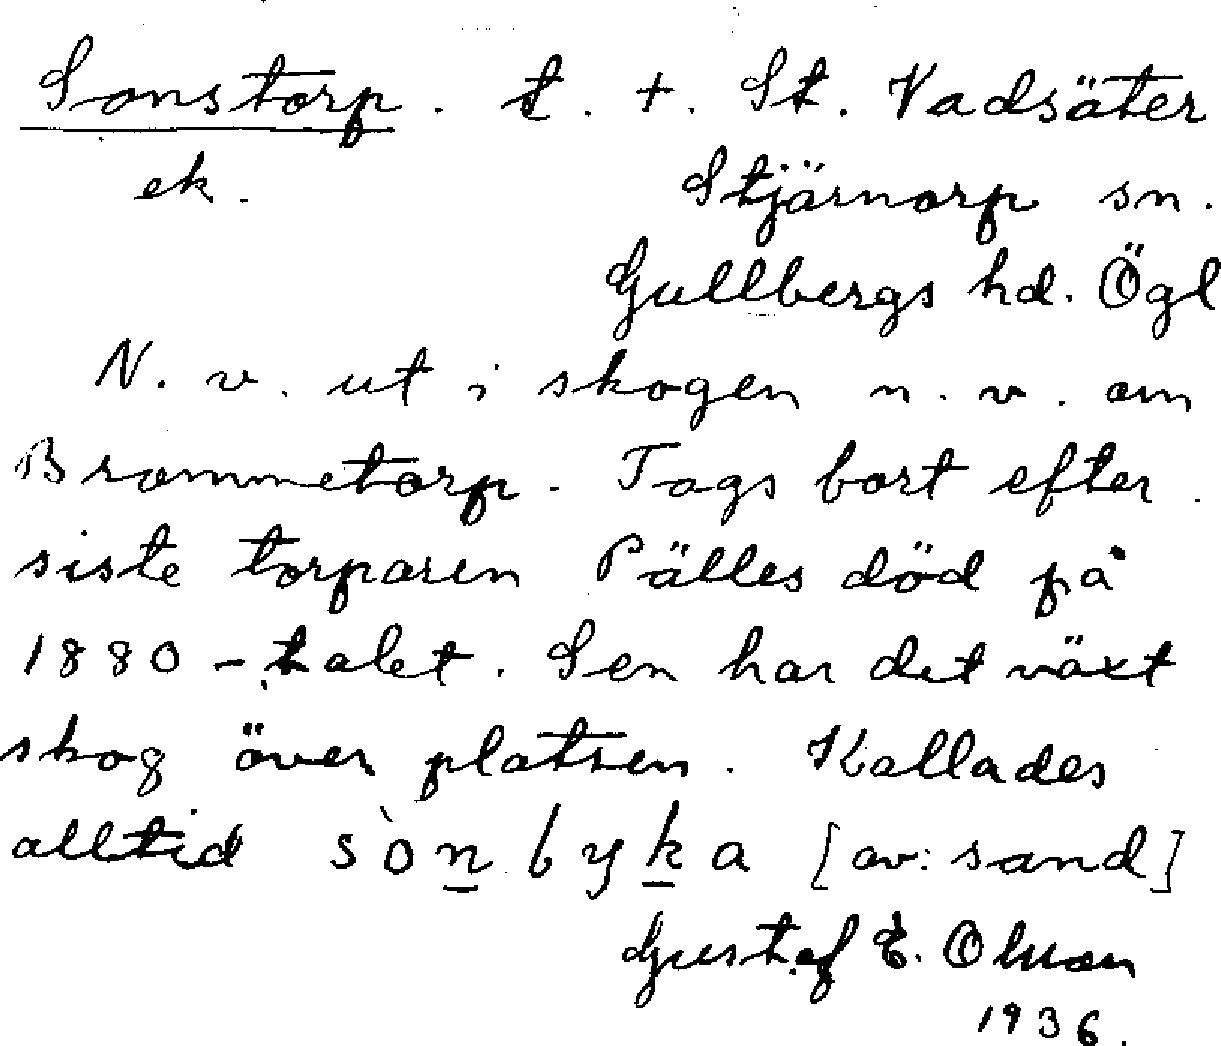 Sonstorp. t. +. St. Vadsäter
ek. Stjärnorp sn.
Gullbergs hd. Ögl
N. v. ut i skogen n. v. om
Brommetorp. Togs bort efter
siste torparen Pälles död på
1880-talet. Sen har det växt
skog över platsen. Kallades
alltid sònbyka [av: sand]
Gustaf E. Olsson
1936.